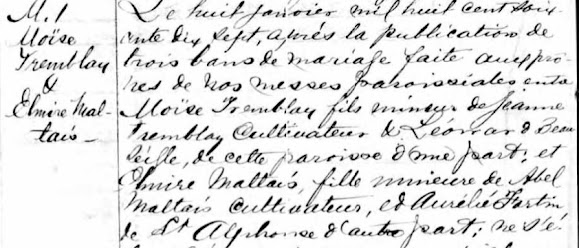 M. 1
Moïse
Tremblay
&
Elmire Mal-
tais_
Le huit janvier mil huit cent soix-
ante dix sept, après la publication de
trois bans de mariage faite aux prô-
nes de nos messes paroissiales entre
Moïse Tremblay fils mineur de
Tremblay Cultivateur & de
de cette paroisse d'une part; et
Elmire Maltais, fille mineure de Abel
Maltais cultivateur, et d'Aurélie Fortin
de St Alphonse d'autre part; ne s'é-